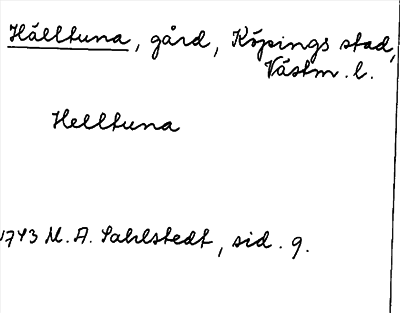 Hälltuna, gård, Köpings stad,
Västm. l.
Helltuna
1743 M. A. Sahlstedt, sid. 9.